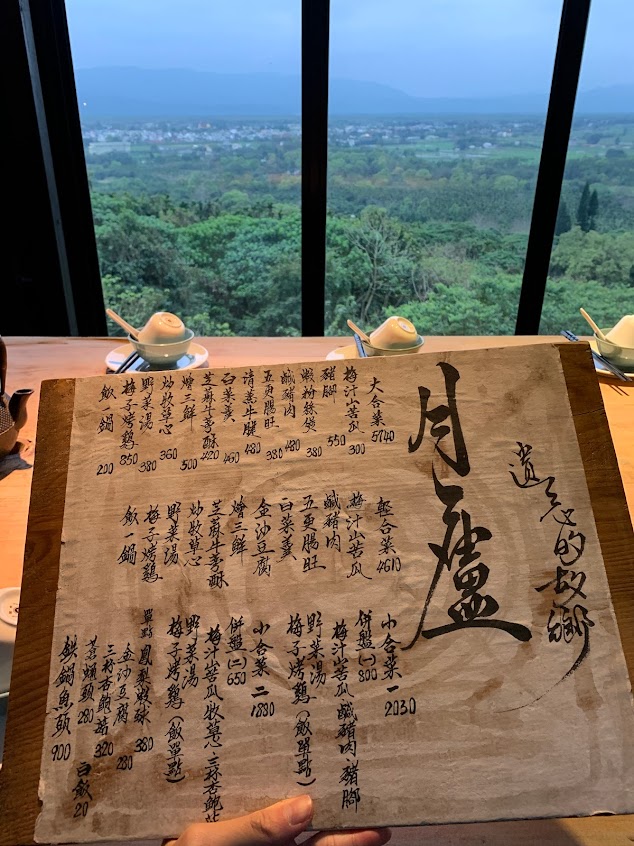 遺忘的故鄉
月廬
大合菜 5740
梅汁山苦瓜 300
豬腳 550
粉絲煲 380
鹹豬肉 480
五更腸旺 380
清蒸牛 480
白菜羹 460
芝麻牛蒡酥 420
燴三鮮 500
炒牧草心 360
野菜湯 380
梅子烤鷄 850
飯一鍋 200
合菜 4610
梅汁山苦瓜
鹹豬肉
五更腸旺
白菜羹
金沙豆腐
燴三鮮
芝麻牛蒡酥
炒牧草心
野菜湯
梅子烤鷄
飯一鍋
小合菜一 2030
併盤(一) 800
梅汁山苦瓜.鹹豬肉.豬腳
野菜湯
梅子烤鷄(飯單點)
小合菜二 1880
併盤(二) 650
梅汁山苦瓜.牧草心.三杯杏鮑菇
野菜湯
梅子烤鷄(飯單點)
單點 鳳梨蝦球 380
金沙豆腐 280
三杯杏鮑菇 320
280
白飯20
鐵鍋魚頭 900